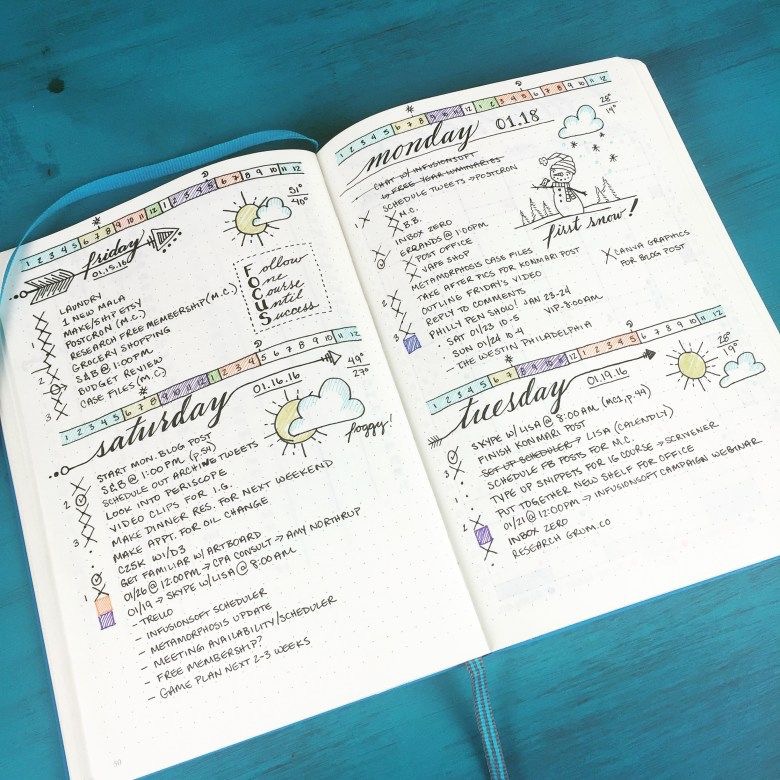 1 2 3 4 5 6 7 8 9 10 11 12 1 2 3 4 5 6 7 8 9 10 11 12
friday
01.15.16
51°
40°
Follow
One
Course
Until
Success
LAUNDRY
1 NEW MALA
MAKE/SHIP ETSY
POSTCRON (M.C.)
RESEARCH FREE MEMBERSHIP (M.C.)
GROCERY SHOPPING
S&B @ 1:00PM
BUDGET REVIEW
CASE FILES (M.C.)
2
3
1 2 3 4 5 6 7 8 9 10 11 12 1 2 3 4 5 6 7 8 9 10 11 12
saturday
01.16.16
49°
27°
foggy!
START MON. BLOG POST
S&B @ 1:00PM (p.54)
SCHEDULE OUT ARCHIVE TWEETS
LOOK INTO PERISCOPE
VIDEO CLIPS FOR I.G.
MAKE DINNER RES. FOR NEXT WEEKEND
MAKE APPT. FOR OIL CHANGE
C25K W1/D3
GET FAMILIAR W/ ARTBOARD
01/26 @ 12:00PM → CPA CONSULT → AMY NORTHRUP
01/19 → SKYPE W/ LISA @ 8:00AM
- TRELLO
- INFUSIONSOFT SCHEDULER
- METAMORPHOSIS UPDATE
- MEETING AVAILABILITY/SCHEDULER
- FREE MEMBERSHIP?
- GAME PLAN NEXT 2-3 WEEKS
2
3
1
50
1 2 3 4 5 6 7 8 9 10 11 12 1 2 3 4 5 6 7 8 9 10 11 12
monday
01.18
28°
19°
CHAT W/ INFUSIONSOFT
↳ FREE YEAR LUMINARIES
SCHEDULE TWEETS → POSTCRON
M.C.
B.B.
INBOX ZERO
ERRANDS @ 1:00PM
POST OFFICE
VAPE SHOP
METAMORPHOSIS CASE FILES
TAKE AFTER PICS FOR KONMARI POST
OUTLINE FRIDAY'S VIDEO
REPLY TO COMMENTS
PHILLY PEN SHOW! JAN 23-24
SAT 01/23 10-5 VIP-8:00AM
SUN 01/24 10-4
- THE WESTIN PHILADELPHIA
1
2
3
first snow!
CANVA GRAPHICS
FOR BLOG POST
1 2 3 4 5 6 7 8 9 10 11 12 1 2 3 4 5 6 7 8 9 10 11 12
tuesday
01.19.16
28°
19°
SKYPE W/ LISA @ 8:00AM (MC1, p.44)
FINISH KONMARI POST
SET UP SCHEDULER → LISA (CALENDLY)
SCHEDULE FB POSTS FOR M.C.
TYPE UP SNIPPETS FOR IG COURSE → SCRIVENER
PUT TOGETHER NEW SHELF FOR OFFICE
01/21 @ 12:00PM → INFUSIONSOFT CAMPAIGN WEBINAR
INBOX ZERO
RESEARCH GRUM.CO
3
1
2